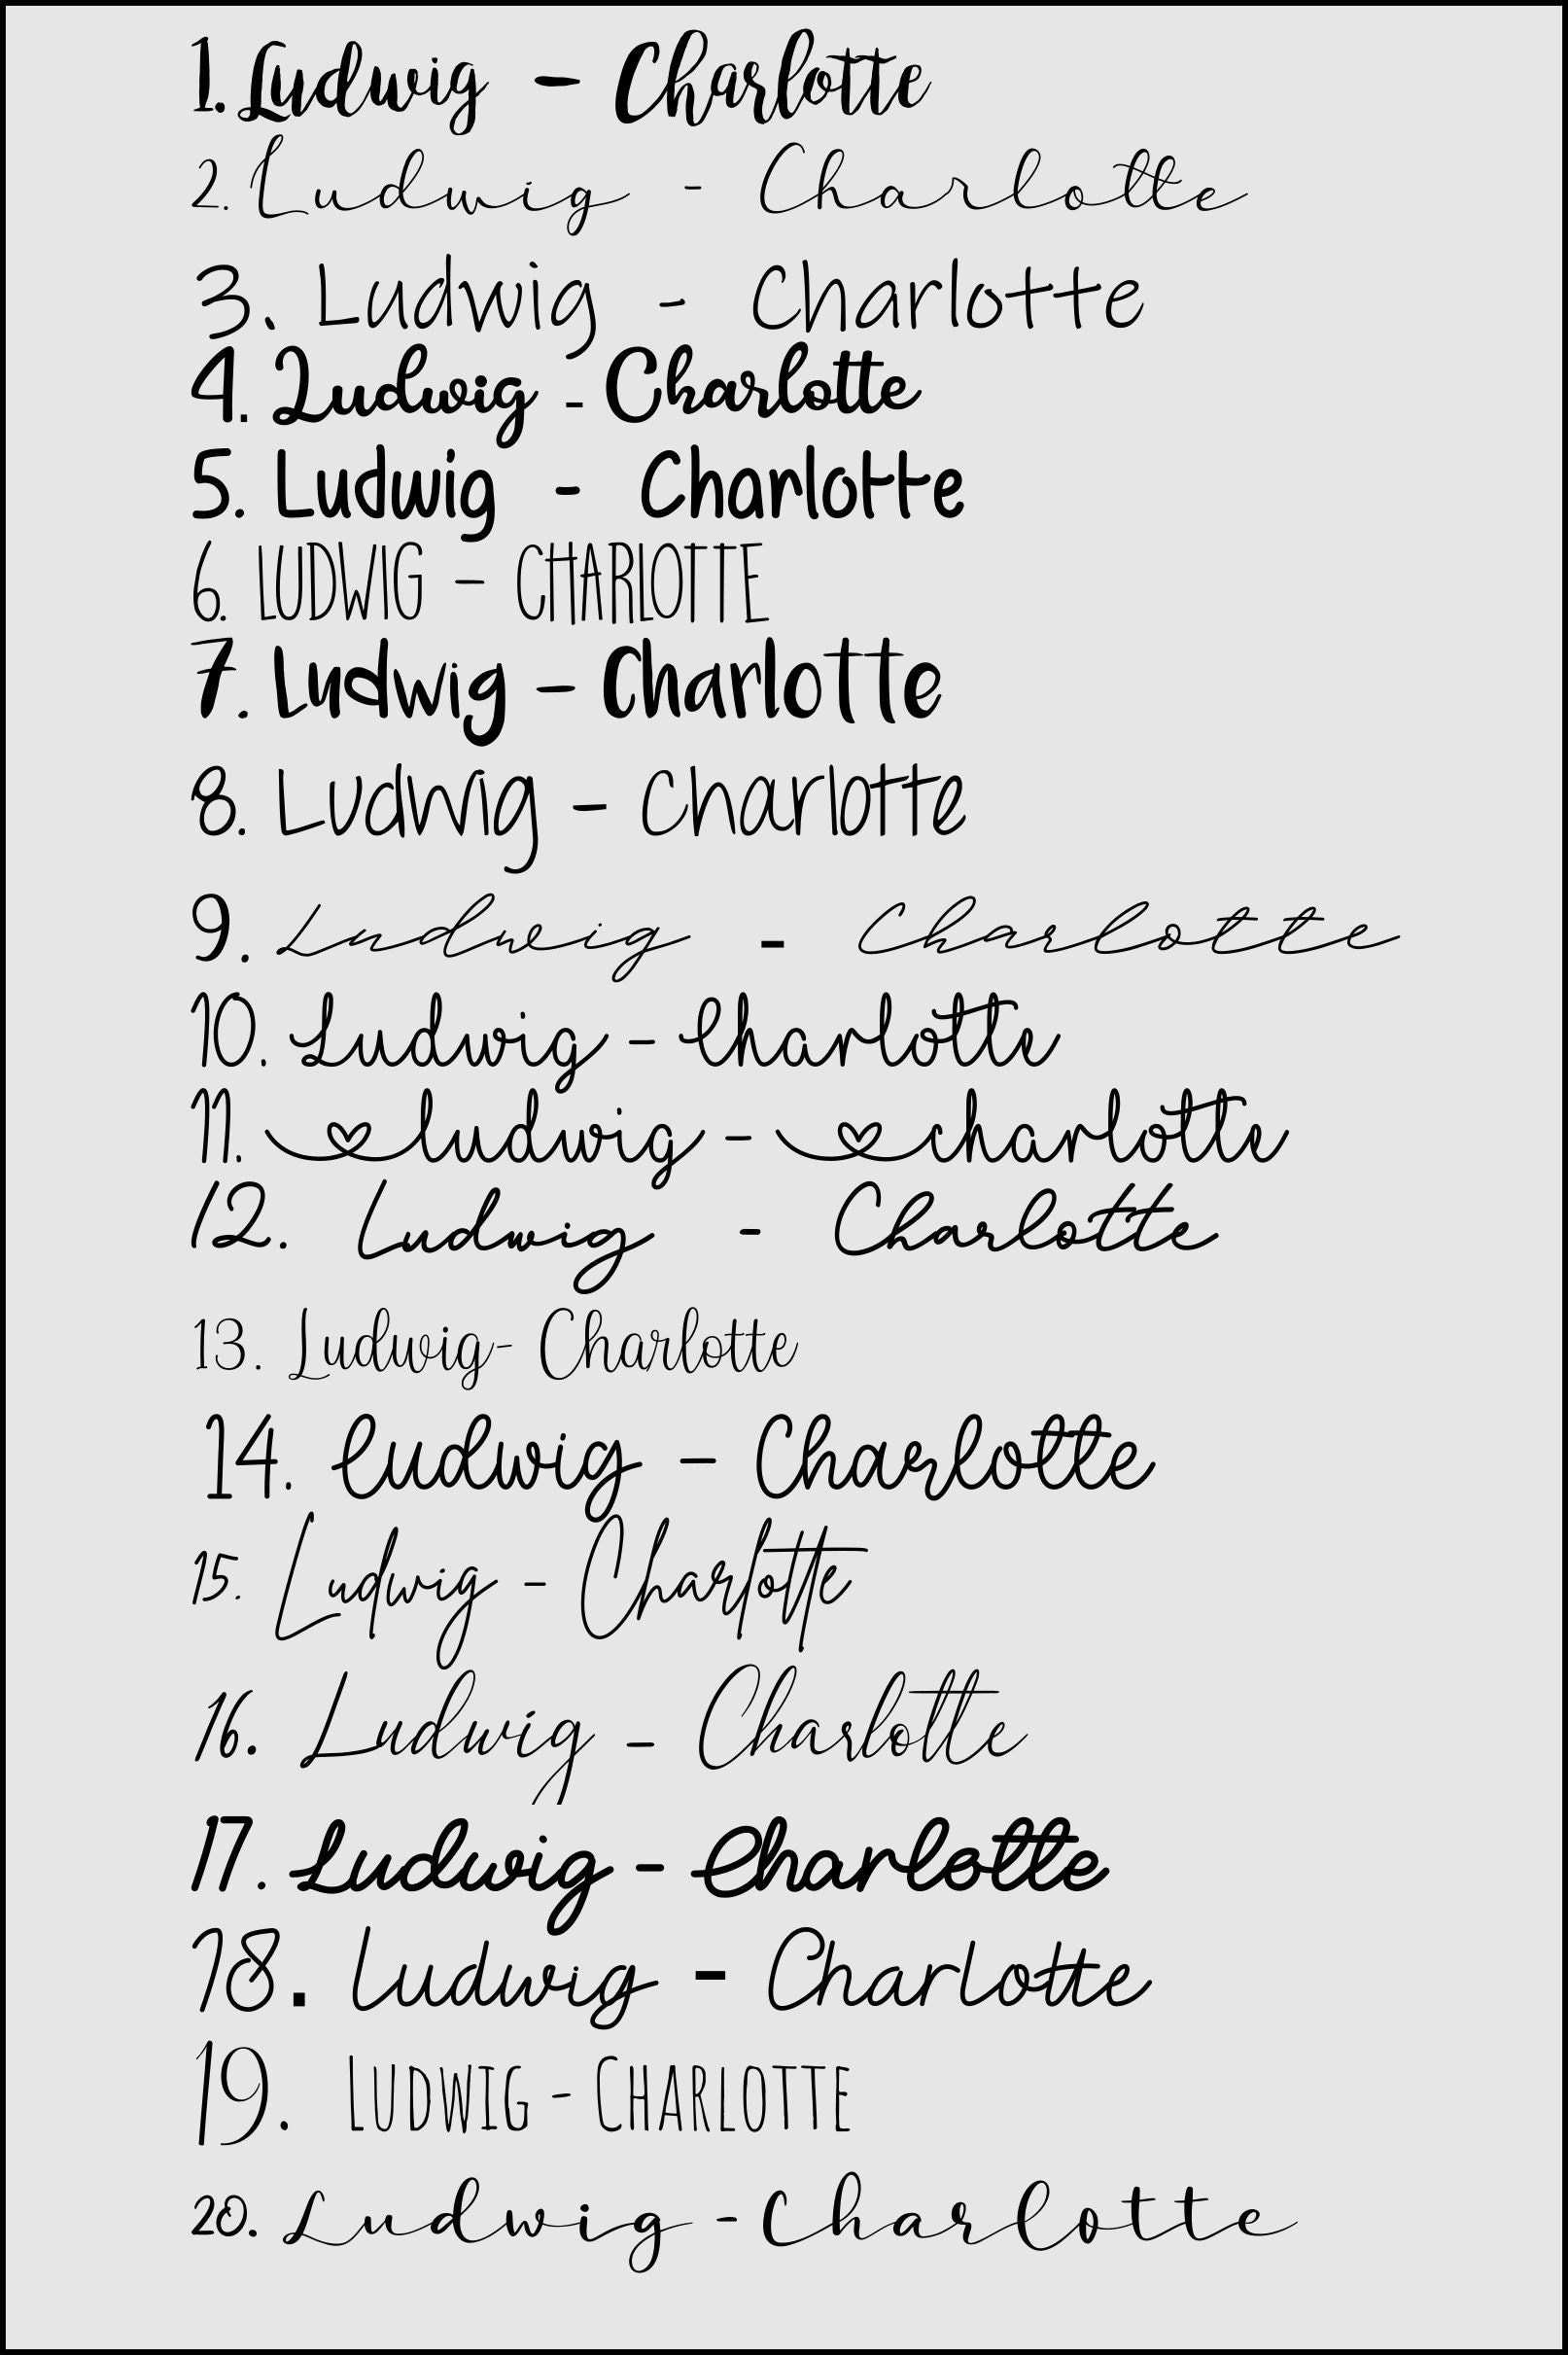 1. Ludwig - Charlotte
2. Ludwig - Charlotte
3. Ludwig - Charlotte
4. Ludwig - Charlotte
5. Ludwig - Charlotte
6. LUDWIG - CHARLOTTE
7. Ludwig - Charlotte
8. Ludwig - Charlotte
9. Ludwig - Charlotte
10. Ludwig - Charlotte
11. ludwig - charlotte
12. Ludwig - Charlotte
13. Ludwig- Charlotte
14. Ludwig - Charlotte
15. Ludwig - Charlotte
16. Ludwig - Charlotte
17. Ludwig - Charlotte
18. Ludwig - Charlotte
19. LUDWIG - CHARLOTTE
20. Ludwig - Charlotte